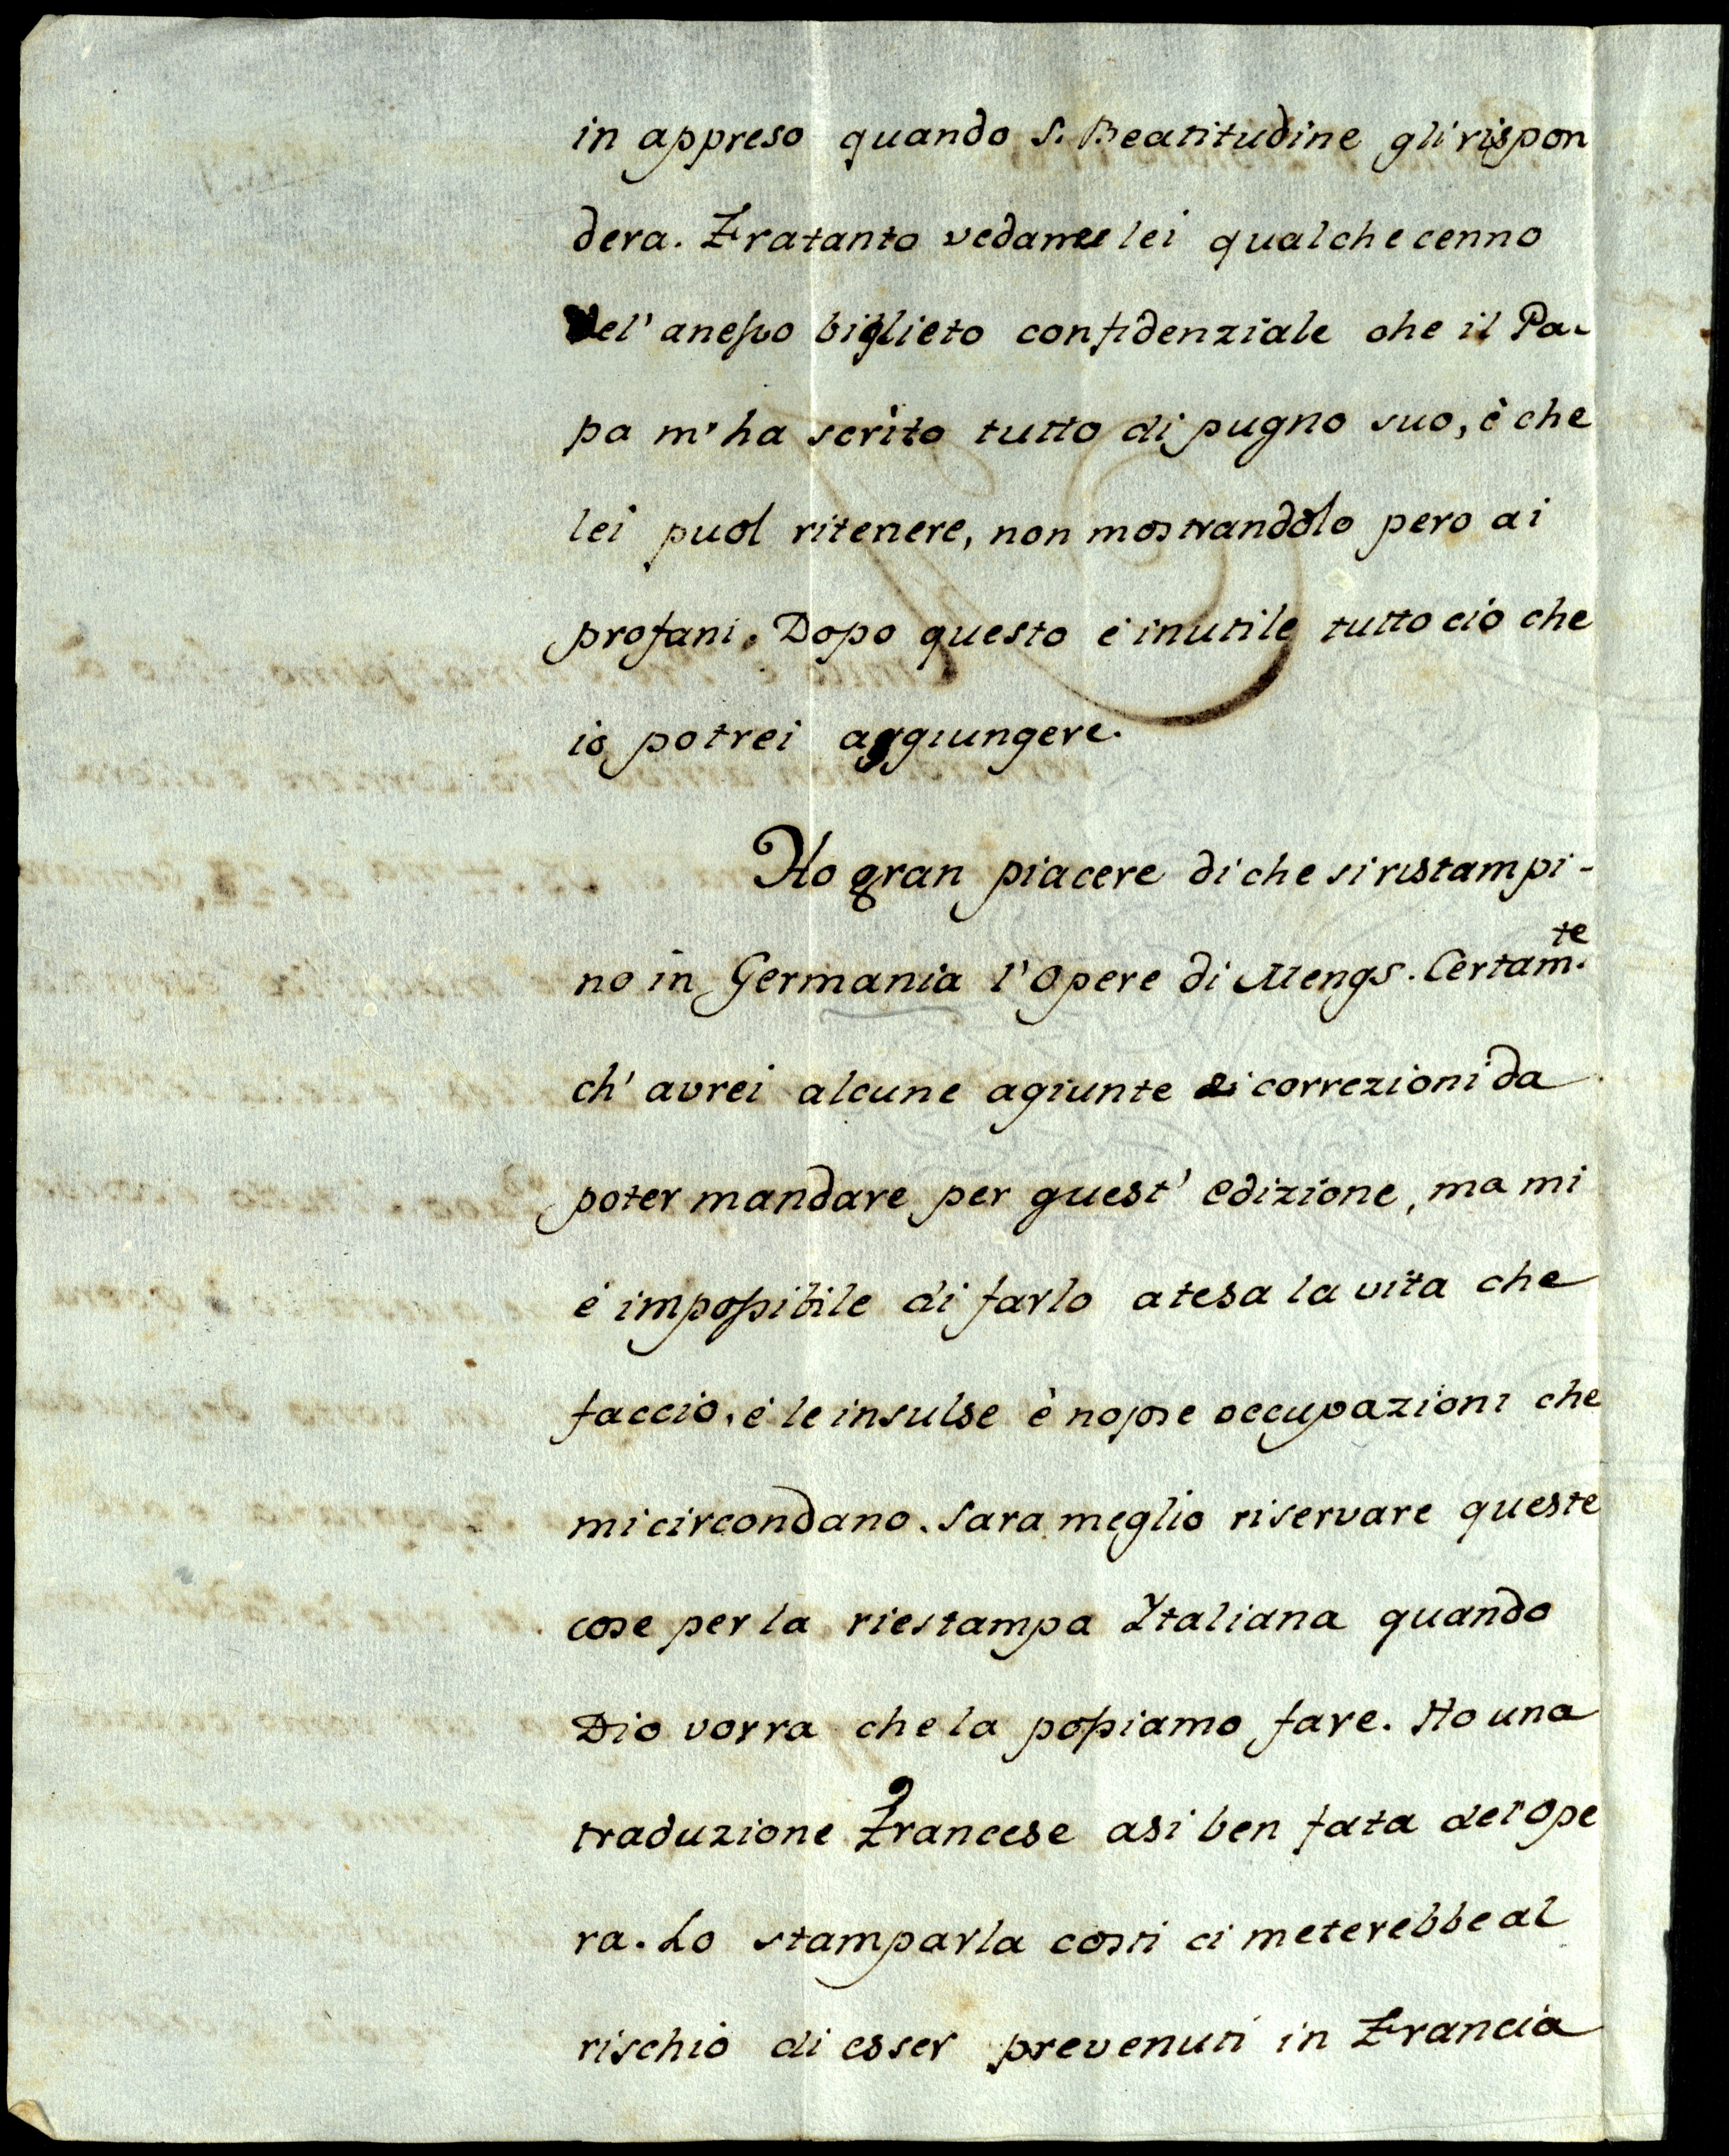 in appreso quando S. Beatitudine gli rispon
dera. Fratanto vedame lei qualche cenno
del' anesso biglieto confidenziale che il Pa-
pa m' ha scrito tutto di pugno suo, è che
lei puol ritenere, non mostrandolo pero ai
profani. Dopo questo é inutile tutto ció che
io potrei aggiungere.
Ho gran piacere di che si ristampi-
no in Germania l' Opere di Mengs. Certam.te
ch' avrei alcune agiunte di correzioni da
poter mandare per quest' edizione, ma mi
é impossibile di farlo atesa la vita che
faccio, é le insulse è nojose occupazioni che
mi circondano. Sara meglio riservare queste
cose per la riestampa Italiana quando
Dio vorra che la possiamo fare. Ho una
traduzione Francese asi ben fata del'Ope
ra. Lo stamparla costi ci meterebbe al
rischio di esser prevenuti in Francia